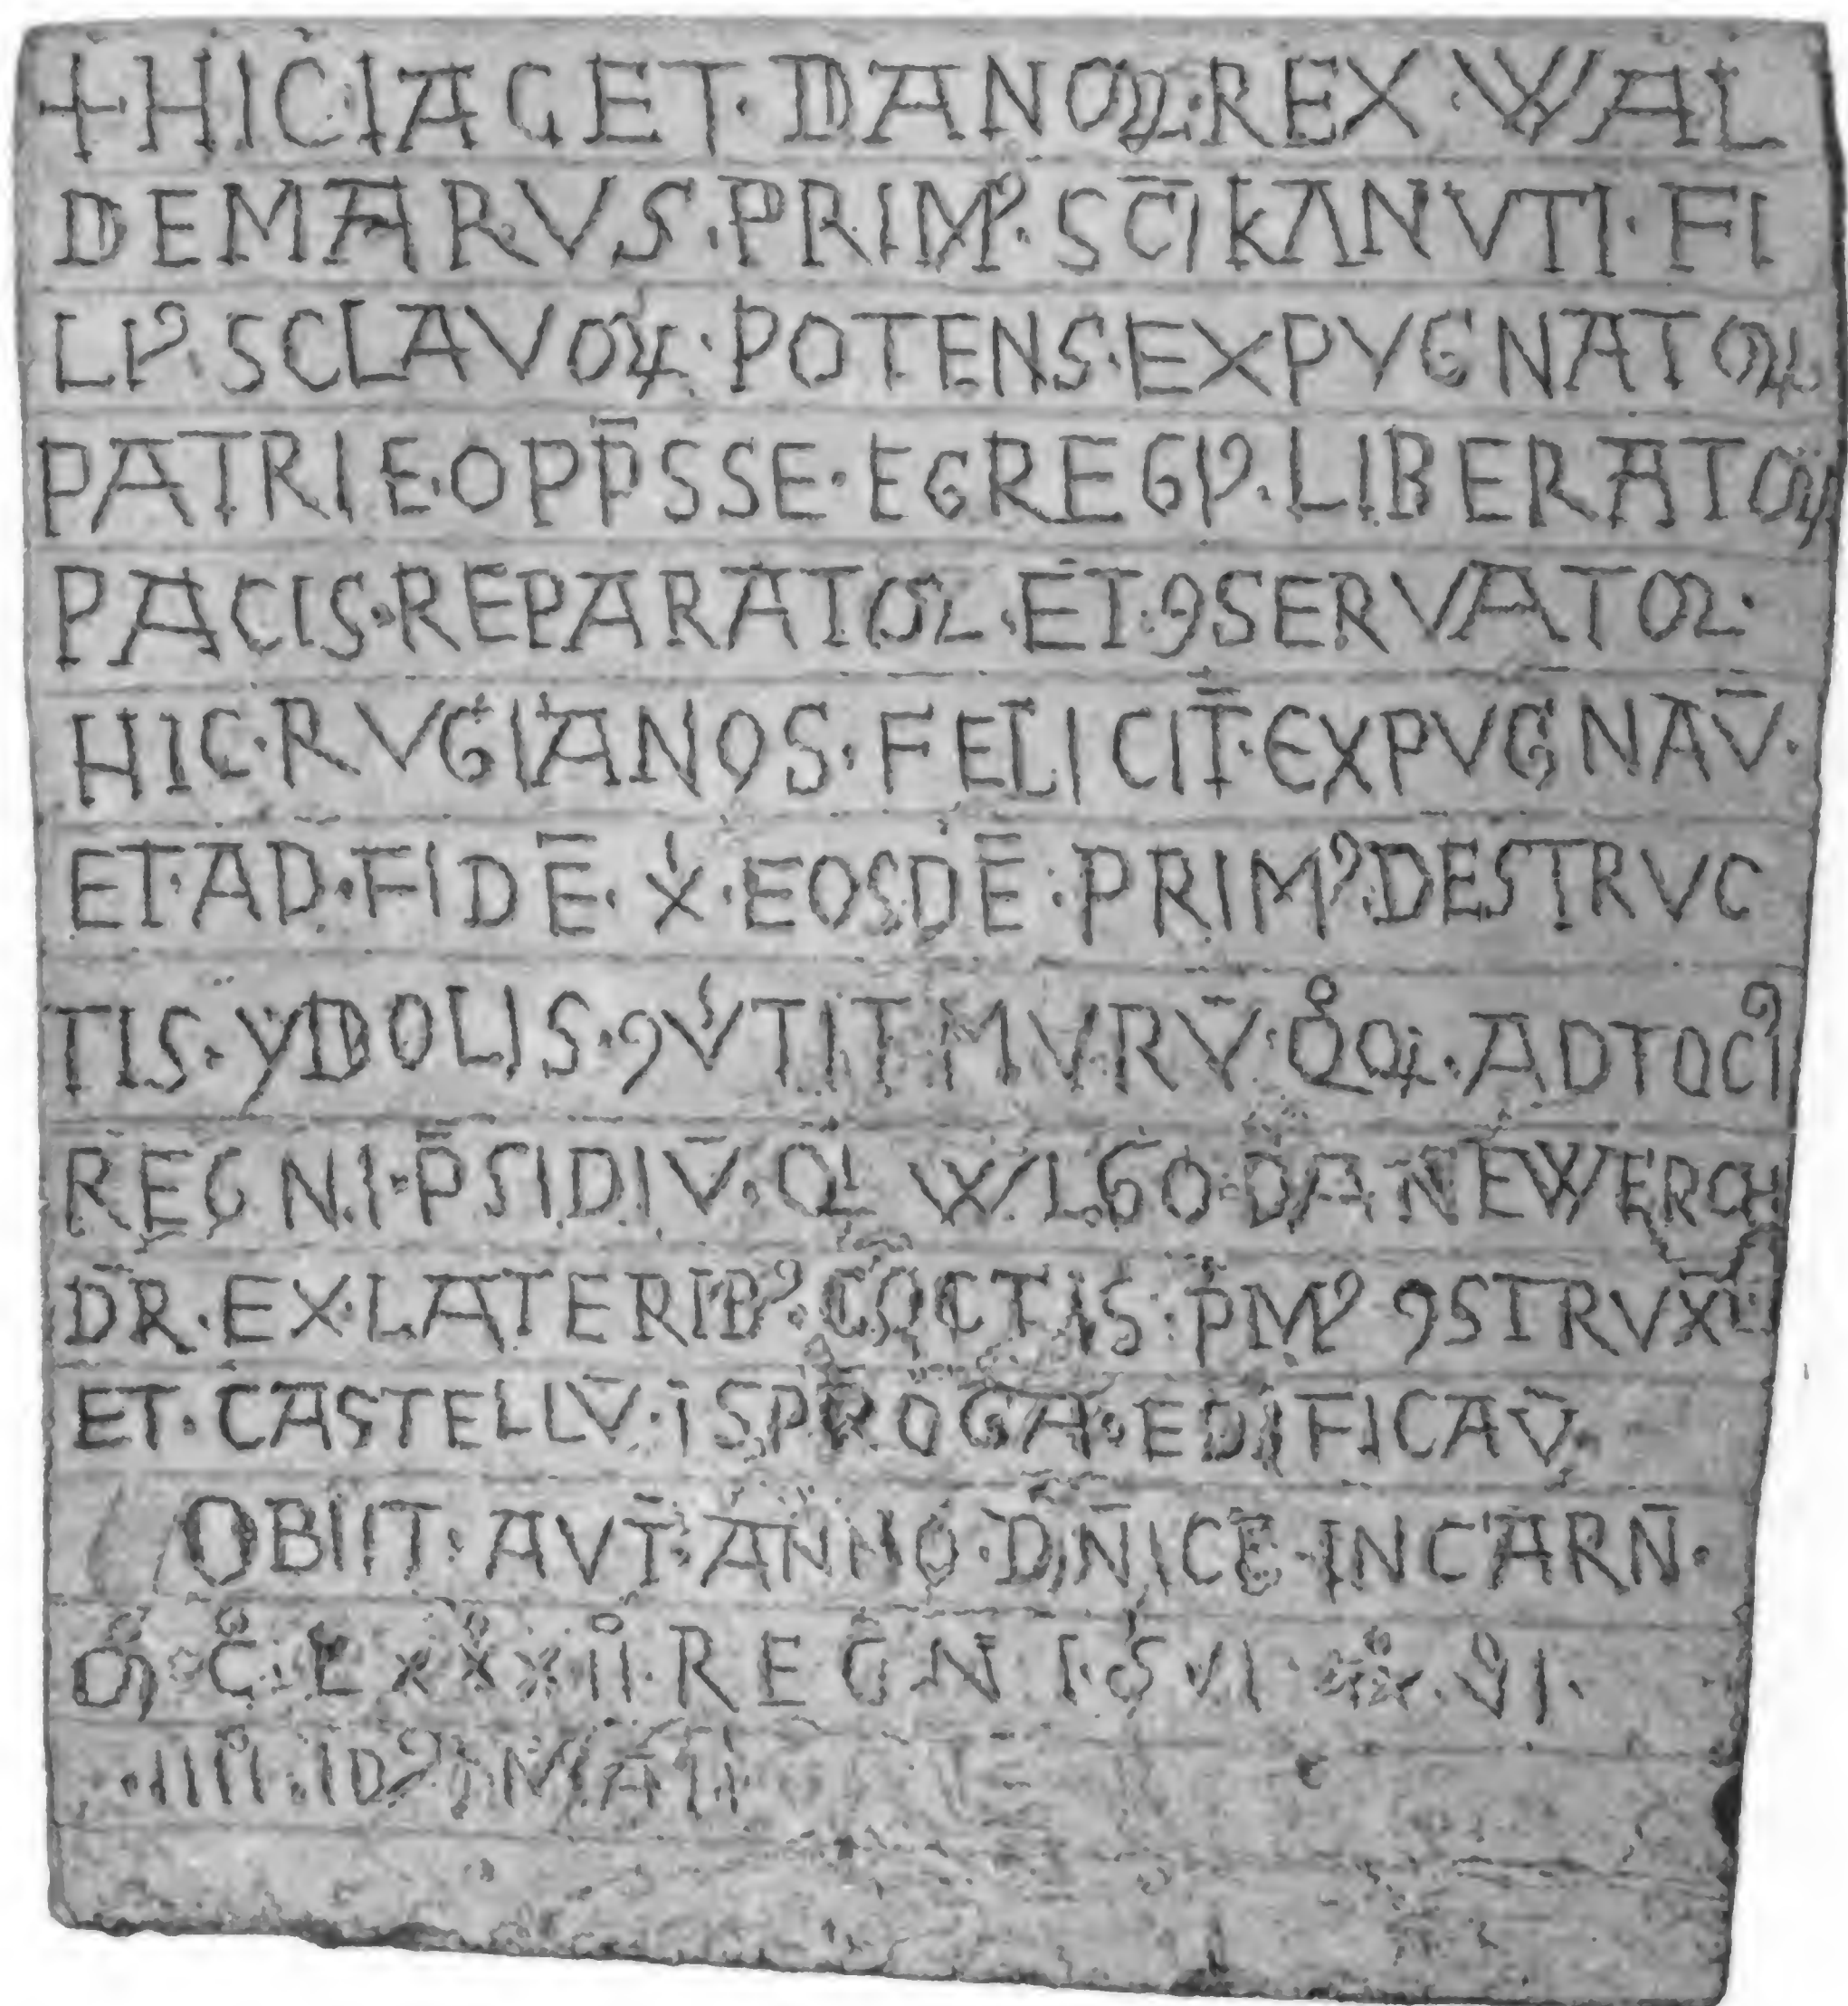 +HIC·IACET·DANOꝝ·REX·WAL
DEMARVS·PRIMꝰ·SC̄I KANVTI·FI
LIꝰ·SCLAVOꝝ·POTENS·EXPVGNATOꝛ
PATRIE·OPP̄SSE·EGREGIꝰ·LIBERATOꝛ
PACIS·REPARATOꝛ·ET·ꝯSERVATOꝛ·
HIC·RVGIANOS·FELICIT̄·EXPVGNAV̄·
ET·AD·FIDĒ·X̍·EOSDĒ·PRIMꝰ·DESTRVC
TIS·YDOLIS·ꝯV̍TIT MVRV̄·QͦQꝝ·AD TOCIꝰ
REGNI·P̄SIDIV̄·QI̍ WLGO·DANEWERCH
DR̄·EX·LATERIBꝰ·COCTIS·P̍MꝰꝯSTRVXI̍
ET·CASTELLV̄·Ī SPROGA·EDIFICAV̄
OBIIT·AVT̄·ANNO·DN̄ICE·INCARN̄·
Mͦ·Cͦ·LXXXIIͦ·REGNI·SVI·XXͦ·VI·
·IIIIͦ·IDꝰ·MAII